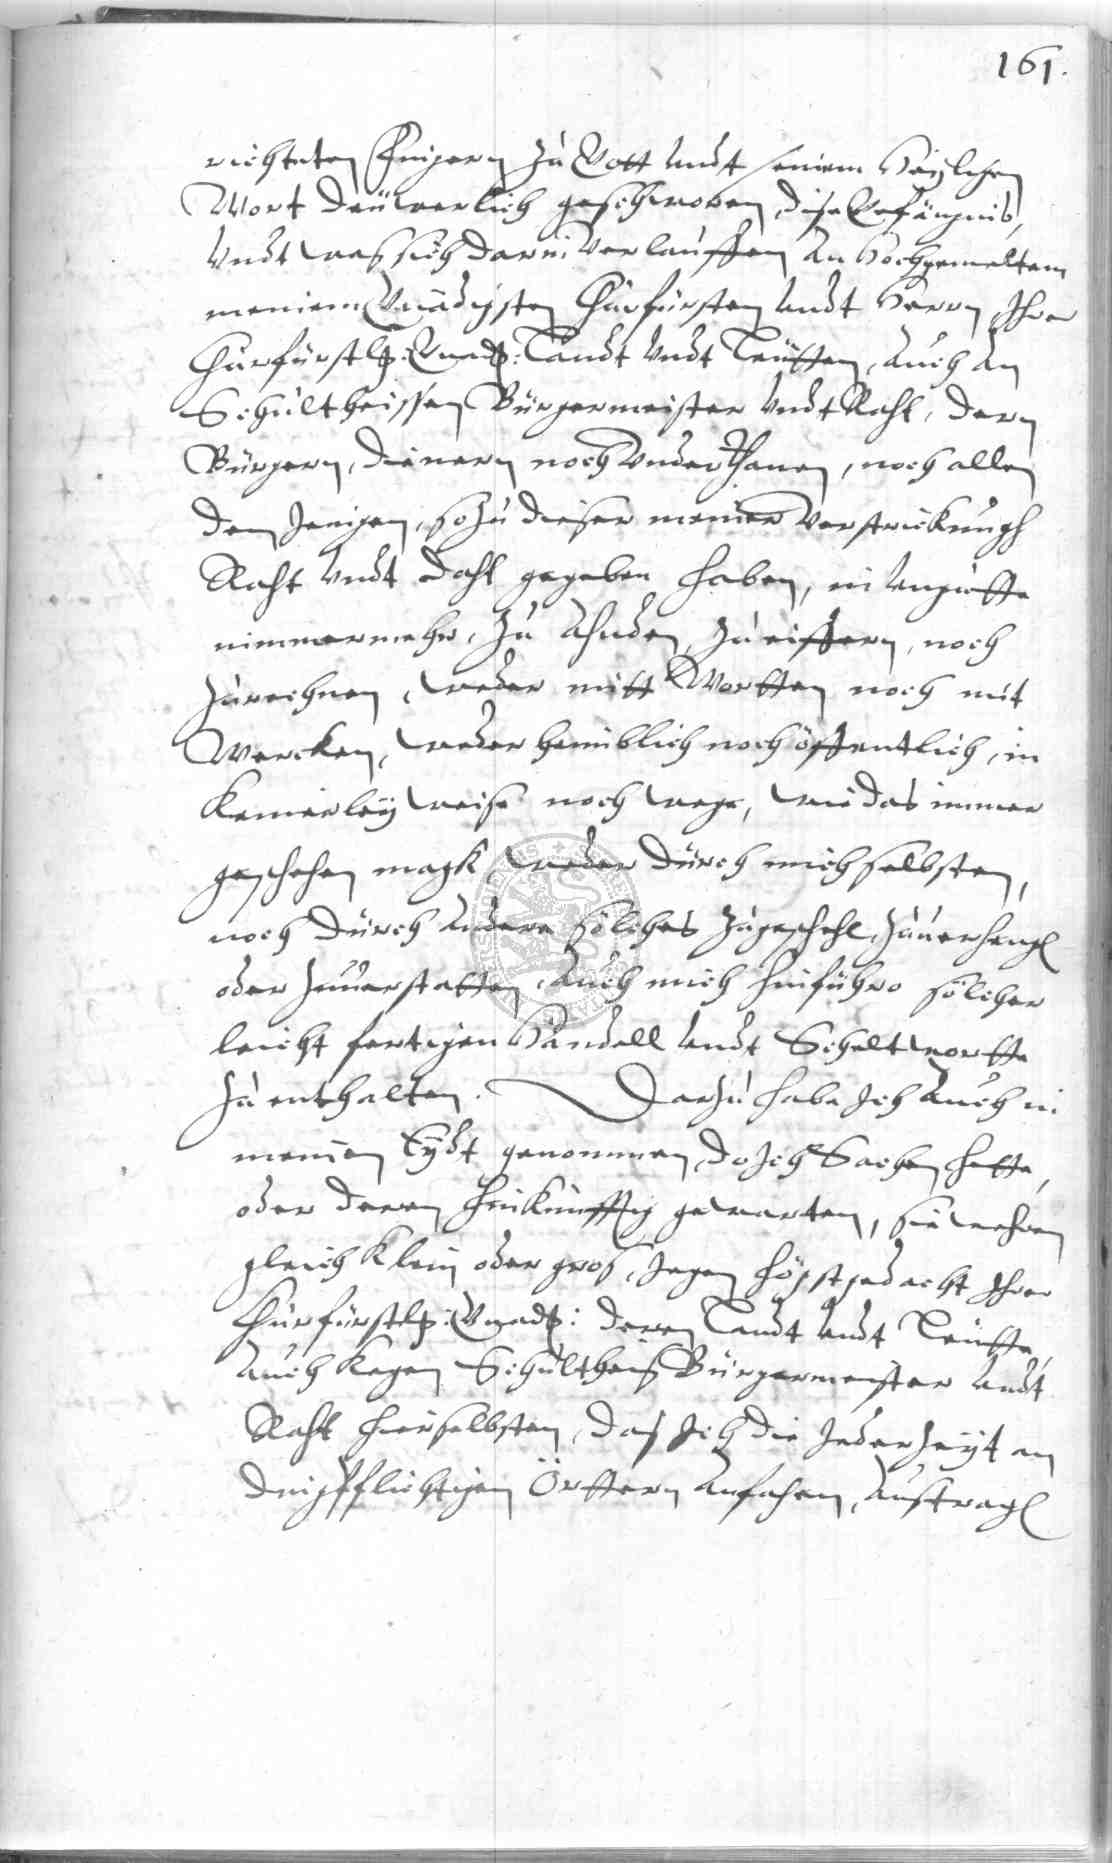 161.
richteten Fingern zu Gott undt seinem Heyligen
Wort deüwerlich geschworen, dise Gefängnis,
Undt was sich darin verlauffen an Hochgemeltem
meniem Gnädigsten Churfürsten undt Herrn, Ihrer
Churfürstlg: Gnadg: Landt Undt Leutten, auch an
Schultheissen Bürgermeister Undt Raht, dern
Bürgern, dienern noch Underthanen, noch allen
den Jenigen, so zu dieser meiner verstrickungh
Raht Undt daht gegeben haben, in Unguette
nimmermehr, zu ahnden, zu eiffern, noch
zurechnen, weder mitt Wortten noch mit
Wercken, weder heimblich noch öffentlich, in
Keinerley weise noch wege, wie das immer
geschehen magk, weder durch mich selbsten,
noch durch andere solches zugeschehn, zuuerhengn
oder zuuerstatten, Auch mich hinführo solcher
leicht fertigen Handell undt Scheltwortte
zu enthalten. Darzu habe Ich auch in
meinen Eydt genommen, do Ich Sachen hette,
oder deren hinkünfftig gewarten, sie wehren
gleich klein oder gros, Jegen höystgedacht Ihrer
Churfürstlg: Gnadg: deren Landt undt Leutte,
auch kegen Schultheis Bürgermeister undt
Raht hierselbsten, das Ich die Jederzeyt an
dingpflichtigen Örttern anfahen, austragn